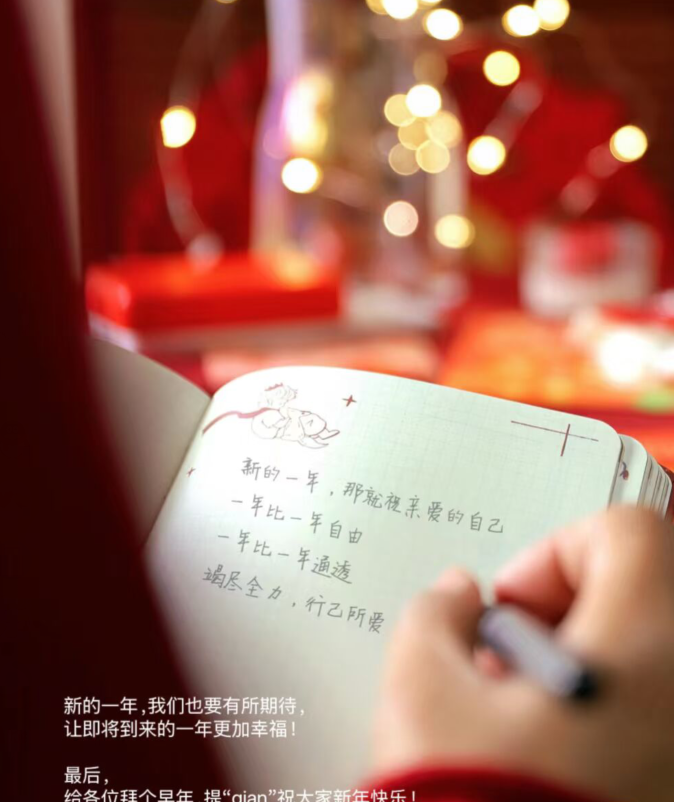 新的一年，那就祝亲爱的自己
一年比一年自由
一年比一年通透
竭尽全力，行己所爱
新的一年,我们也要有所期待,
让即将到来的一年更加幸福!
最后,
给各位拜个早年,提“qian”祝大家新年快乐!